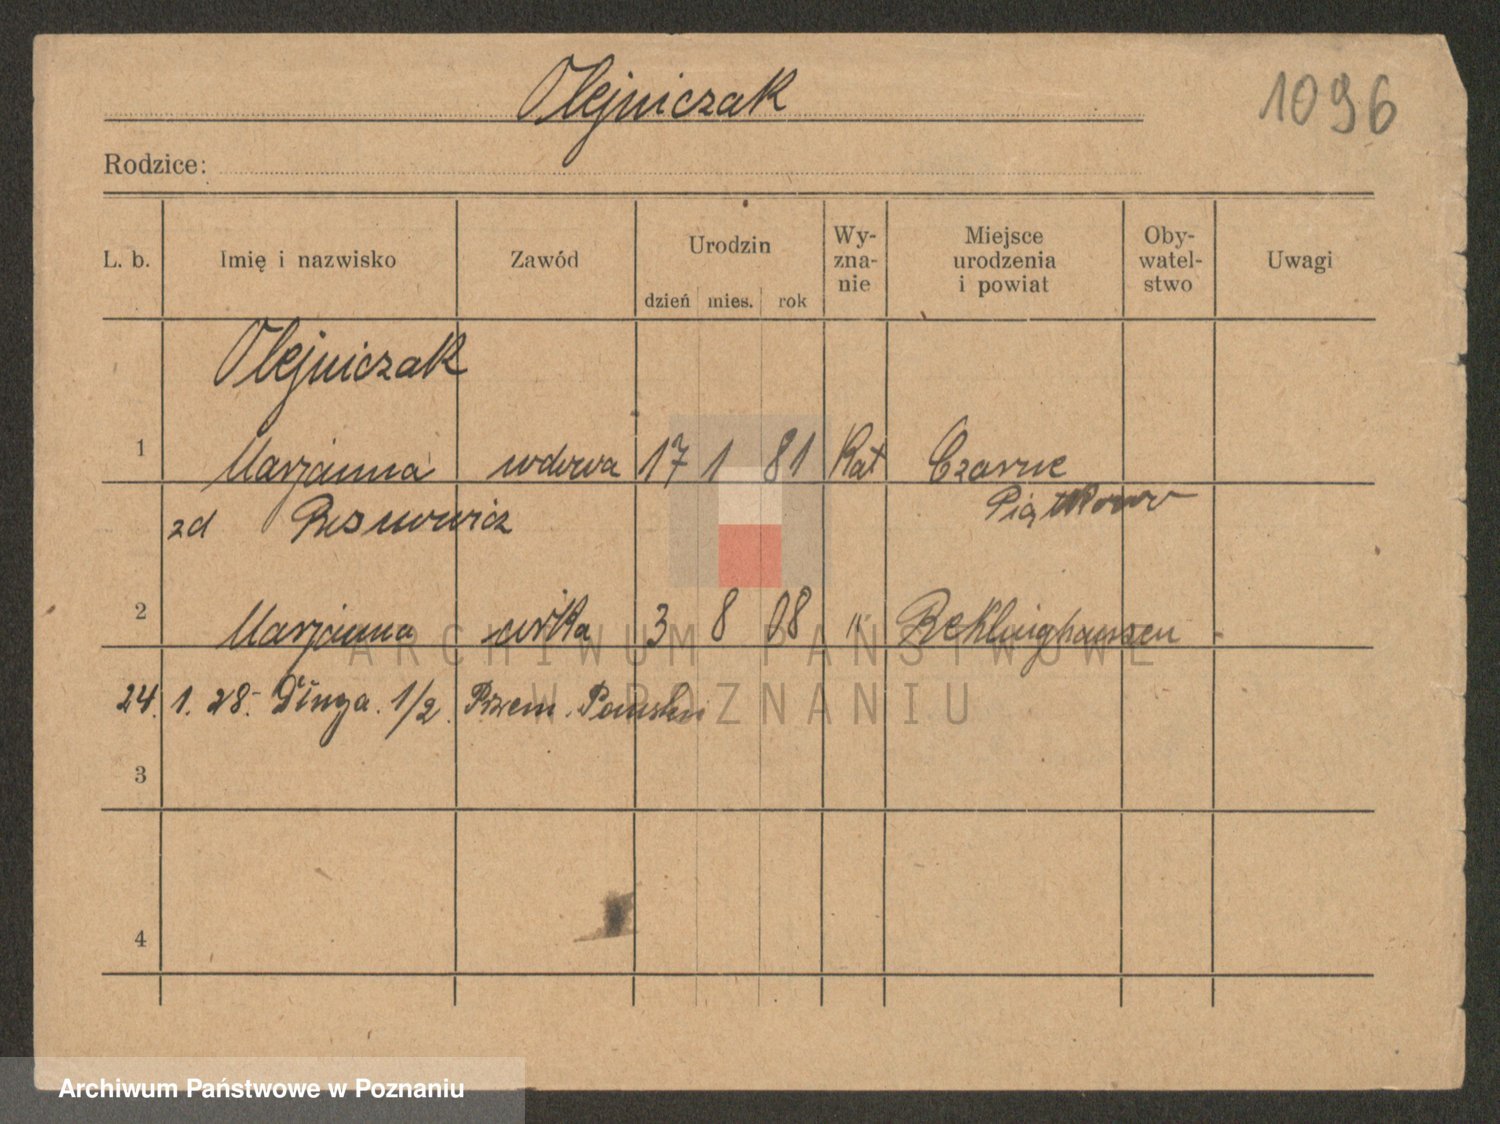 Olejniczak
1096
Rodzice:
L. b. Imię i nazwisko Zawód Urodzin dzień mies. rok Wy-zna-nie Miejsce urodzenia i powiat Oby-watel-stwo Uwagi
Olejniczak
1 Marjanna wdowa 17 1 81 Kat Czarne
zd Piątkowo
2 Marjanna córka 3 8 08 " Reklinghausen -
24. 1. 28. Długa 1/2.
3
4
ARCHIWUM PAŃSTWOWE
W POZNANIU
Archiwum Państwowe w Poznaniu